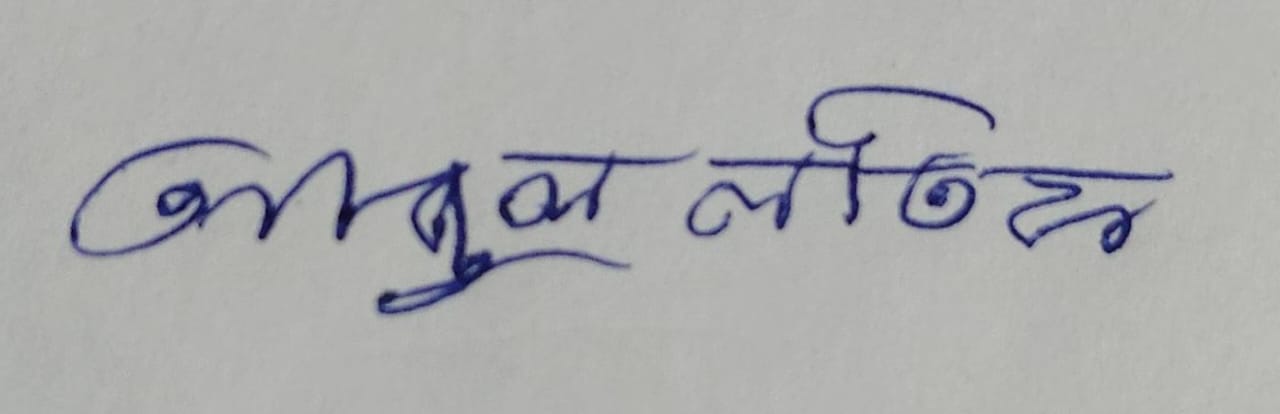 আব্দুল লতিফ